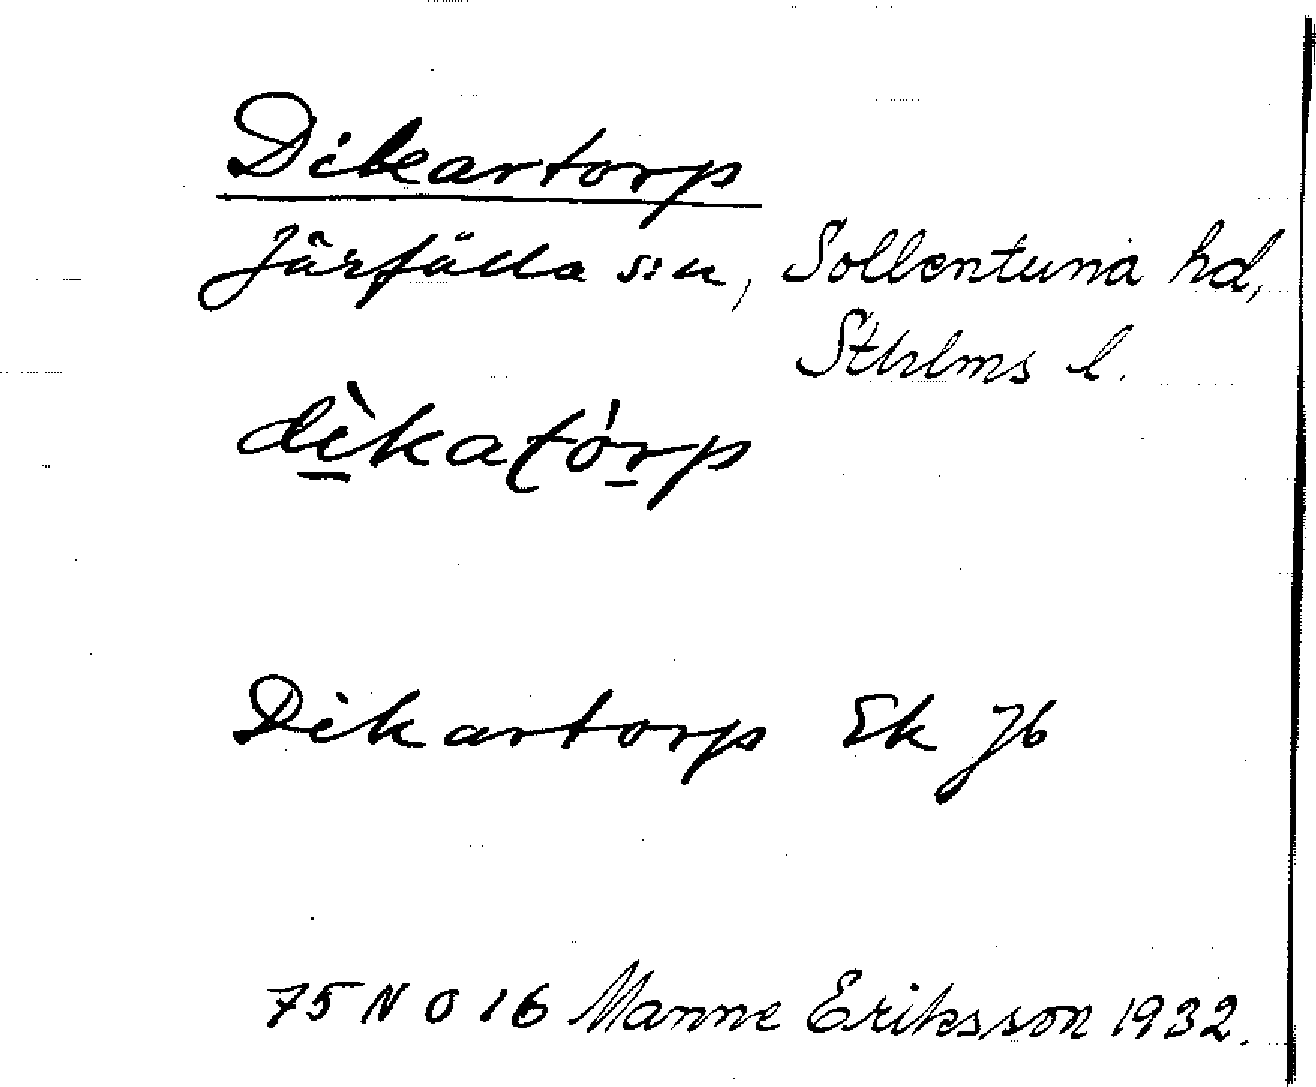 Dikartorp
Järfälla sn, Sollentuna hd,
Sthlms l.
dìkatórp
Dikartorp Ek Jb
75 N O 16 Manne Eriksson 1932.